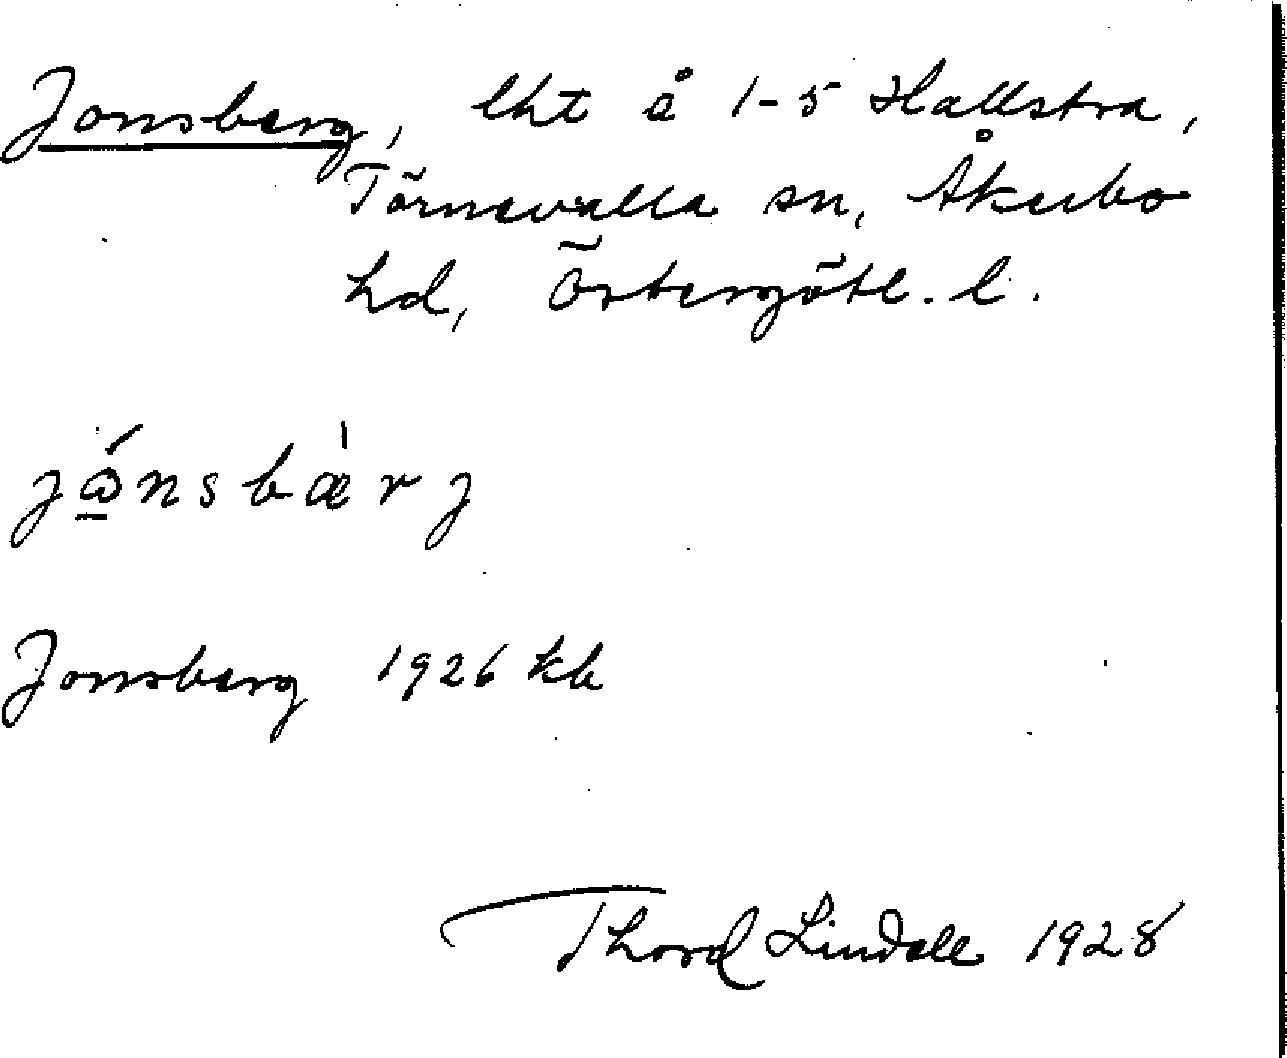 Jonsberg, lht å 1-5 Hallstra,
Törnevalla sn, Åkerbo
hd, Östergötl. l.
jǻnsbæ̀rj
Jonsberg 1926 kb
Thord Lindell 1928